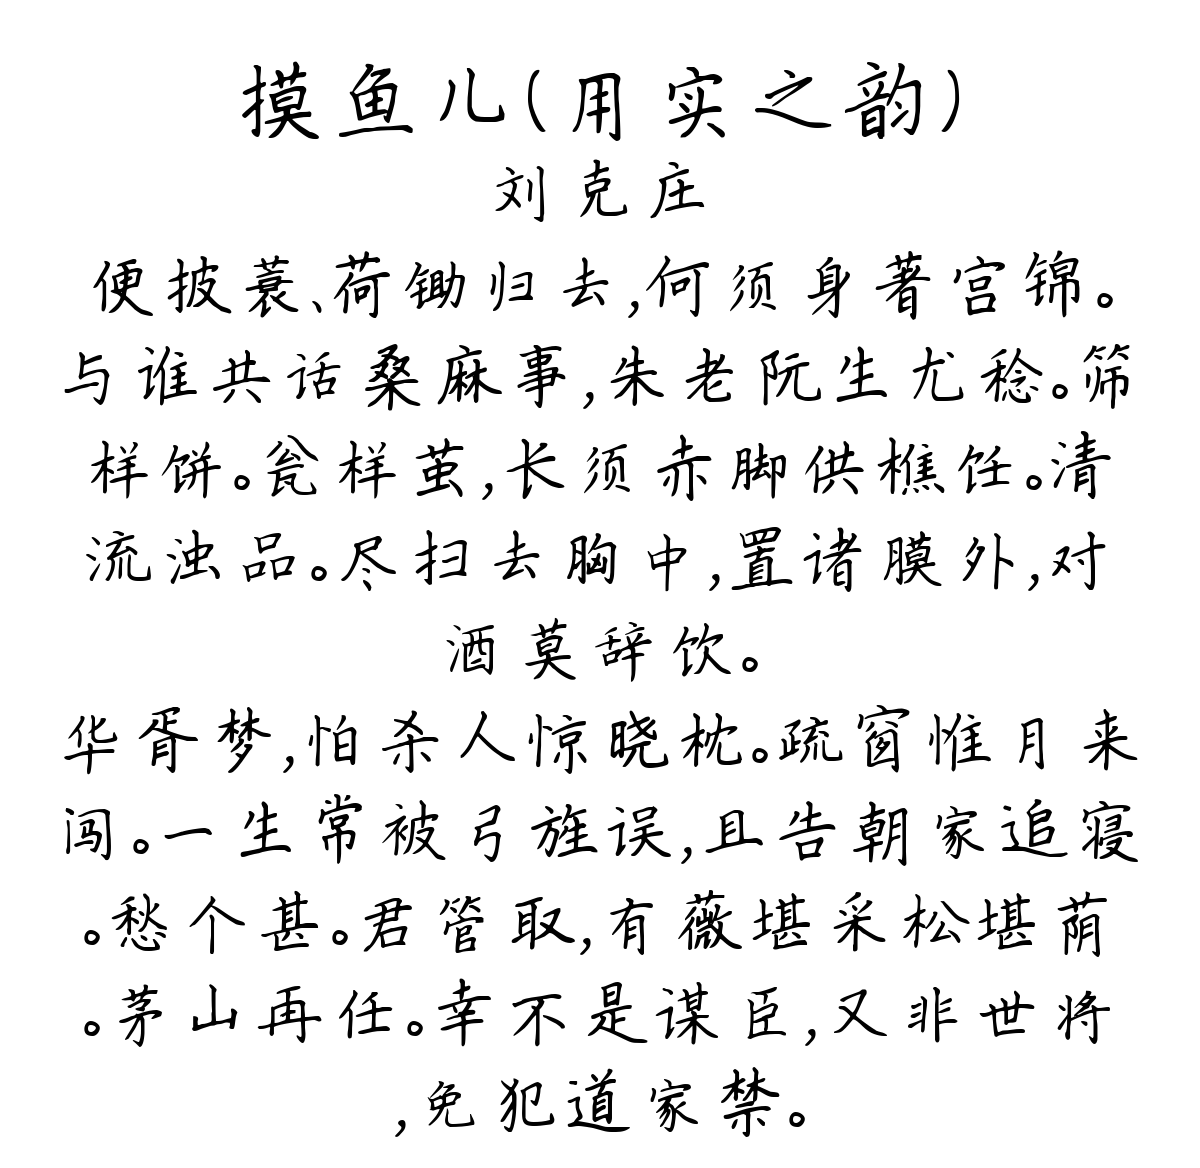 摸鱼儿(用实之韵)
刘克庄
便披蓑、荷锄归去,何须身著宫锦。
与谁共话桑麻事,朱老阮生尤稔。筛
样饼。瓮样茧,长须赤脚供樵饪。清
流浊品。尽扫去胸中,置诸膜外,对
酒莫辞饮。
华胥梦,怕杀人惊晓枕。疏窗惟月来
闯。一生常被弓旌误,且告朝家追寝
。愁个甚。君管取,有薇堪采松堪荫
。茅山再任。幸不是谋臣,又非世将
,免犯道家禁。